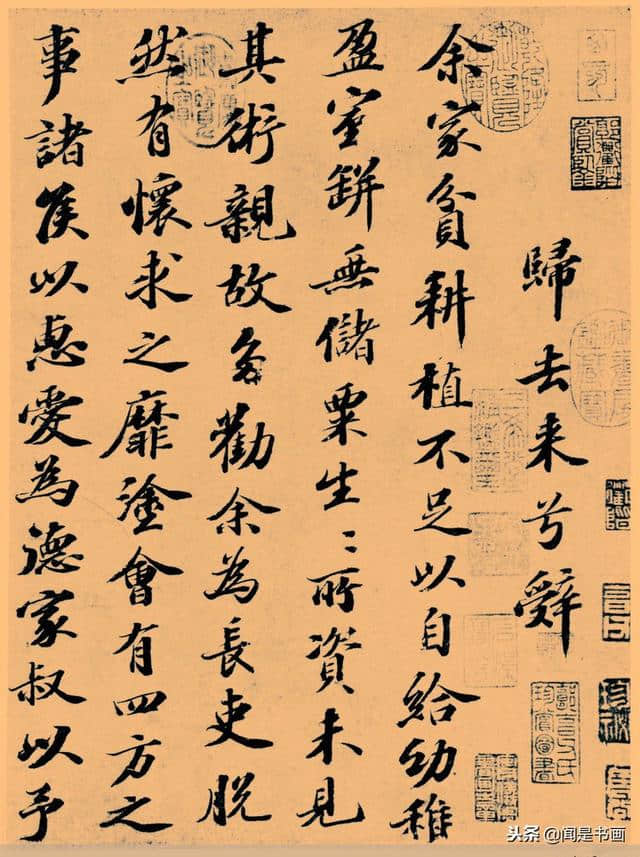 歸去来兮辤
余家貧耕植不足以自給幼稚
盈室缾無儲粟生〻所資未見
其術親故多勸余為長吏脱
然有懷求之靡塗會有四方之
事諸侯以惠愛為德家叔以予
头条 @闻是书画